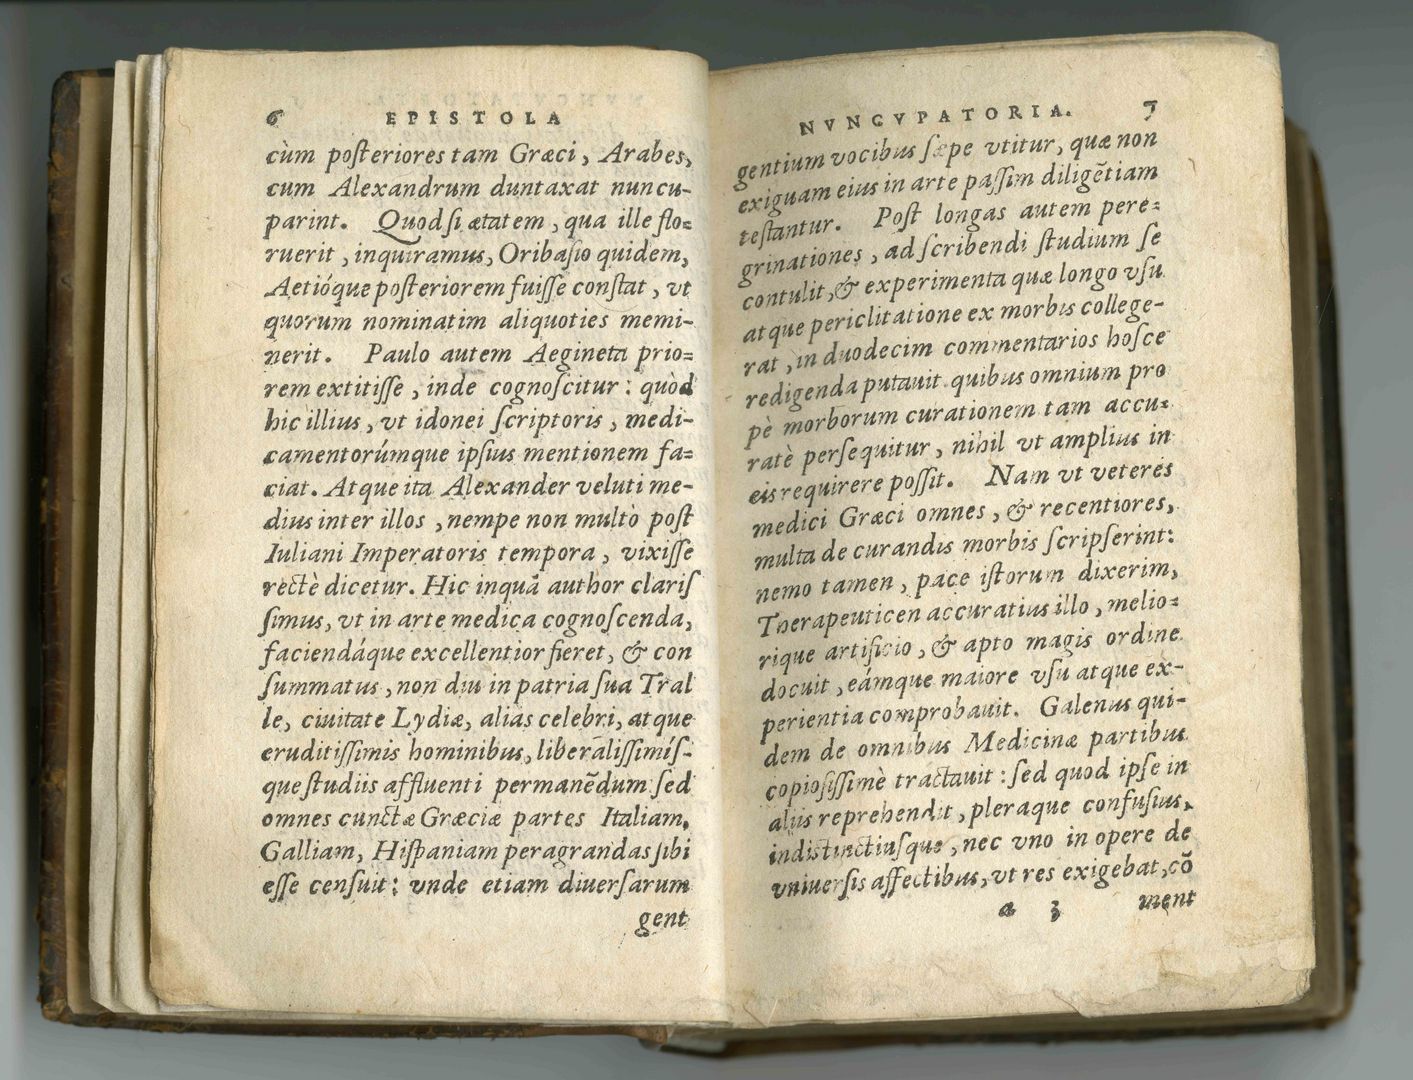 6 EPISTOLA
cùm posteriores tam Græci, Arabes,
cum Alexandrum duntaxat nuncu-
parint. Quod si ætatem, qua ille flo=
ruerit, inquiramus, Oribasio quidem,
Aetióque posteriorem fuisse constat, vt
quorum nominatim aliquoties memi-
nerit. Paulo autem Aegineta prio=
rem extitisse, inde cognoscitur: quòd
hic illius, vt idonei scriptoris, medi-
camentorúmque ipsius mentionem fa=
ciat. Atque ita Alexander veluti me-
dius inter illos, nempe non multò post
Iuliani Imperatoris tempora, vixisse
rectè dicetur. Hic inquã author claris
simus, vt in arte medica cognoscenda,
faciendáque excellentior fieret, & con
summatus, non diu in patria sua Tral
le, ciuitate Lydiæ, alias celebri, atque
eruditissimis hominibus, liberalissimís-
que studiis affluenti permanẽdum sed
omnes cunctæ Græciæ partes Italiam,
Galliam, Hispaniam peragrandas sibi
esse censuit: vnde etiam diuersarum
gent
NVNCVPATORIA. 7
gentium vocibus sæpe vtitur, quæ non
exiguam eius in arte passim diligẽtiam
testantur. Post longas autem pere=
grinationes, ad scribendi studium se
contulit, & experimenta quæ longo vsu
atque periclitatione ex morbis college-
rat, in duodecim commentarios hosce
redigenda putauit quibus omnium pro
pè morborum curationem tam accu=
ratè persequitur, nihil vt amplius in
eis requirere possit. Nam vt veteres
medici Græci omnes, & recentiores,
multa de curandis morbis scripserint:
nemo tamen, pace istorum dixerim,
Therapeuticen accuratius illo, melio=
rique artificio, & apto magis ordine
docuit, eámque maiore vsu atque ex-
perientia comprobauit. Galenus qui-
dem de omnibus Medicinæ partibus
copiosissimè tractauit: sed quod ipse in
aliis reprehendit, pleraque confusius,
indistinctiusque, nec vno in opere de
vniuersis affectibus, vt res exigebat, cõ
a 3 ment